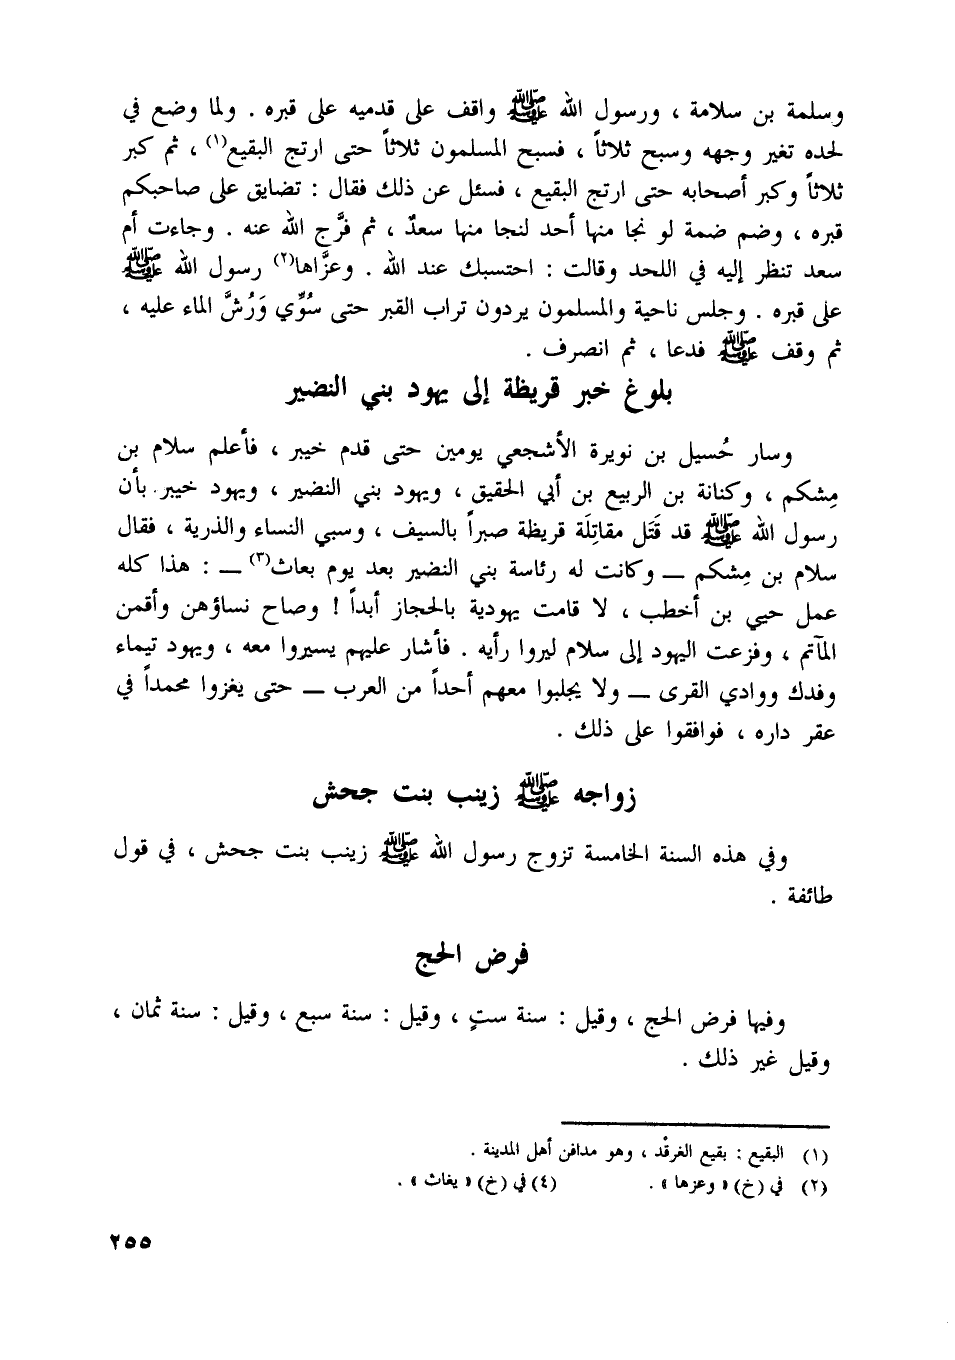 وسلمة بن سلامة ، ورسول الله ﷺ واقف على قدميه على قبره . ولما وضع في
لحده تغير وجهه وسبح ثلاثاً ، فسبح المسلمون ثلاثاً حتى ارتج البقيع(١) ، ثم كبر
ثلاثاً وكبر أصحابه حتى ارتج البقيع ، فسئل عن ذلك فقال : تضايق على صاحبكم
قبره ، وضم ضمة لو نجا منها أحد لنجا منها سعدٌ ، ثم فرَّج الله عنه . وجاءت أم
سعد تنظر إليه في اللحد وقالت : احتسبك عند الله . وعزَّاها(٢) رسول الله ﷺ
على قبره . وجلس ناحية والمسلمون يردون تراب القبر حتى سُوِّي وَرُشَّ الماء عليه ،
ثم وقف ﷺ فدعا ، ثم انصرف .
بلوغ خبر قريظة إلى يهود بني النضير
وسار حُسيل بن نويرة الأشجعي يومين حتى قدم خيبر ، فأعلم سلام بن
مِشكم ، وكنانة بن الربيع بن أبي الحقيق ، ويهود بني النضير ، ويهود خيبر بأن
رسول الله ﷺ قد قَتَل مقاتِلَة قريظة صبراً بالسيف ، وسبي النساء والذرية ، فقال
سلام بن مِشكم ــ وكانت له رئاسة بني النضير بعد يوم بعاث(٣) ــ : هذا كله
عمل حيي بن أخطب ، لا قامت يهودية بالحجاز أبداً ! وصاح نساؤهن وأقمن
المآتم ، وفزعت اليهود إلى سلام ليروا رأيه . فأشار عليهم يسيروا معه ، ويهود تيماء
وفدك ووادي القرى ــ ولا يجلبوا معهم أحداً من العرب ــ حتى يغزوا محمداً في
عقر داره ، فوافقوا على ذلك .
زواجه ﷺ زينب بنت جحش
وفي هذه السنة الخامسة تزوج رسول الله ﷺ زينب بنت جحش ، في قول
طائفة .
فرض الحج
وفيها فرض الحج ، وقيل : سنة ستٍ ، وقيل : سنة سبع ، وقيل : سنة ثمان ،
وقيل غير ذلك .
(١) البقيع : بقيع الغرقْد ، وهو مدافن أهل المدينة .
(٢) في (خ) « وعزها » . (٤) في (خ) « يغاث » .
٢٥٥